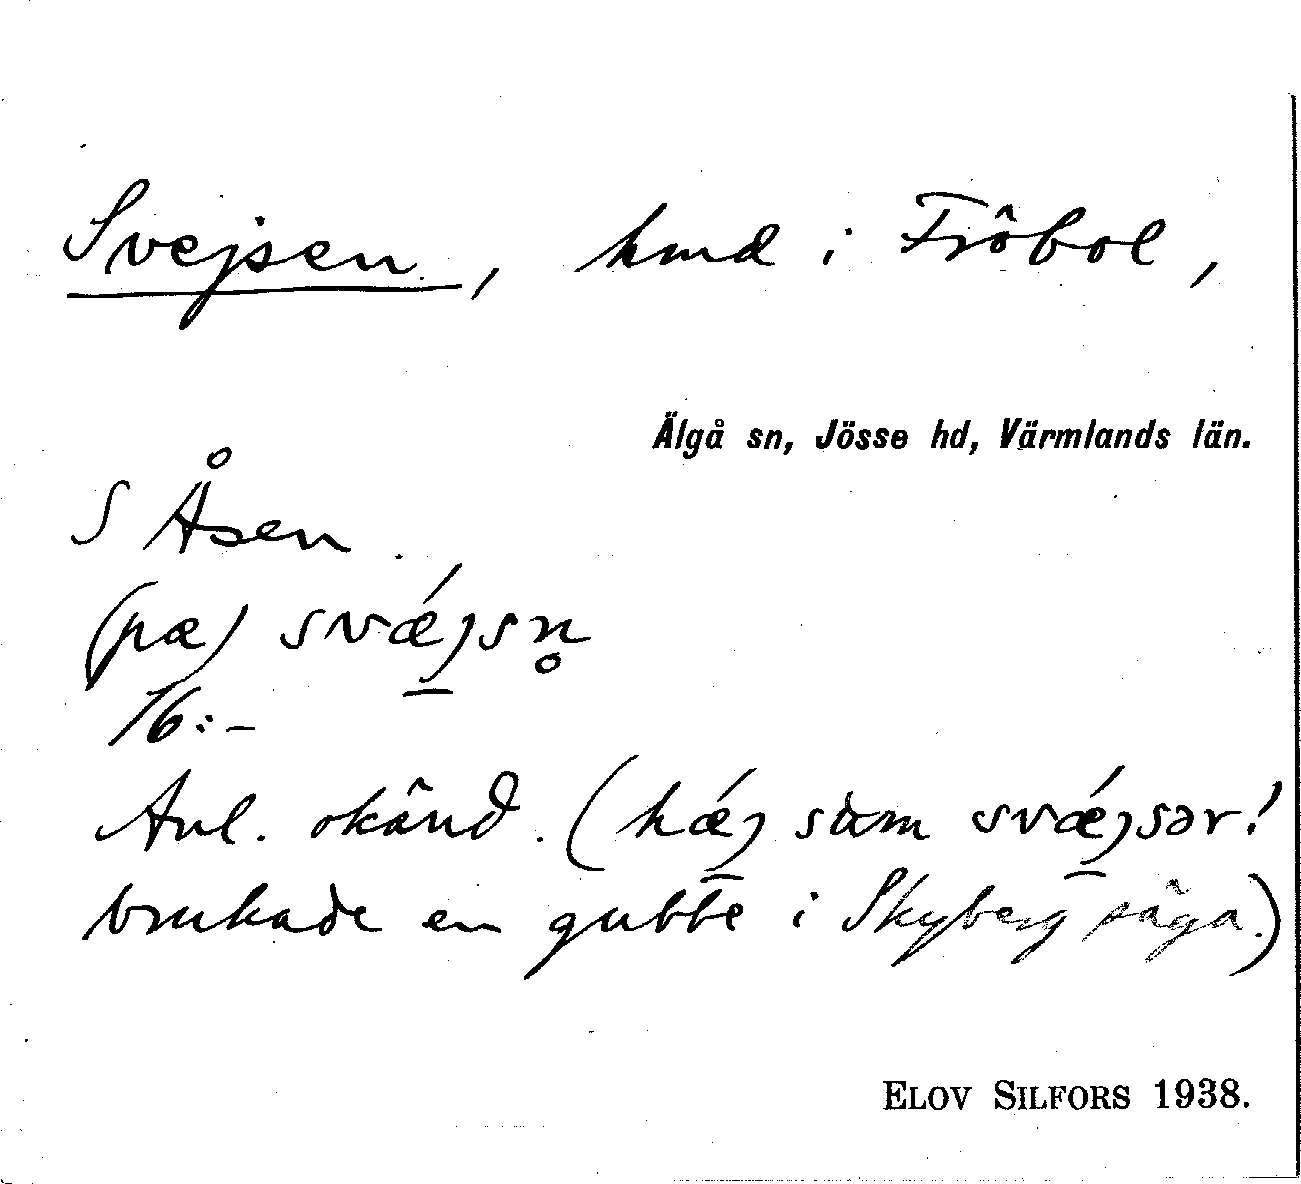 Svejsen, hmd i Fröbol,
Älgå sn, Jösse hd, Värmlands län.
S Åsen.
(pæ) svǽjsn̥
76:-
Anl. okänd. (hǽj sàm svǽjsər!
brukade en gubbe i Skyberg säga.)
ELOV SILFORS 1938.